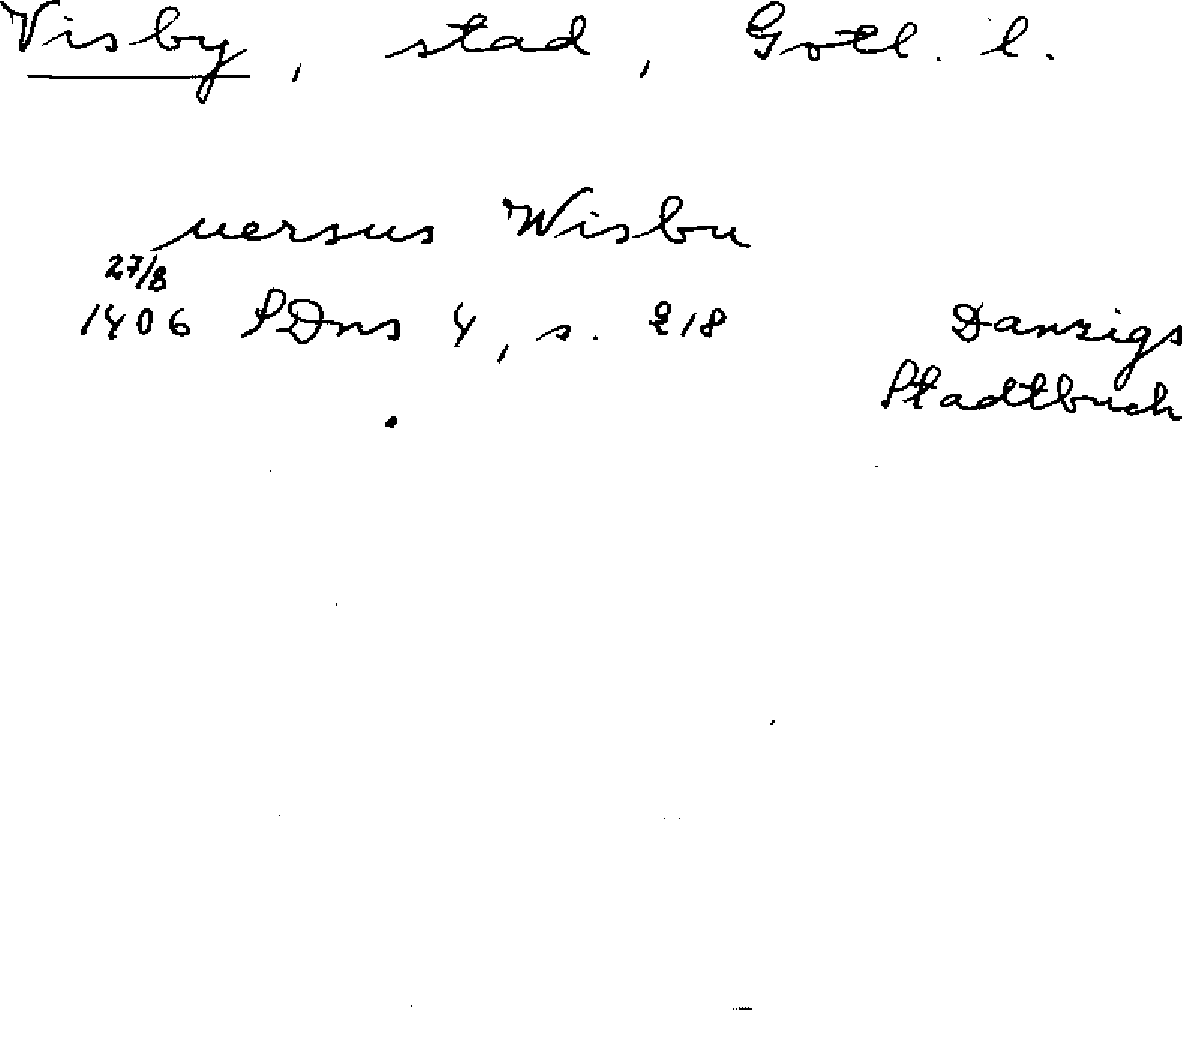 Visby, stad, Gotl. l.
uersus Wisbu
27/8
1406 SDns 4, s. 218 Danzigs
Stadtbuch